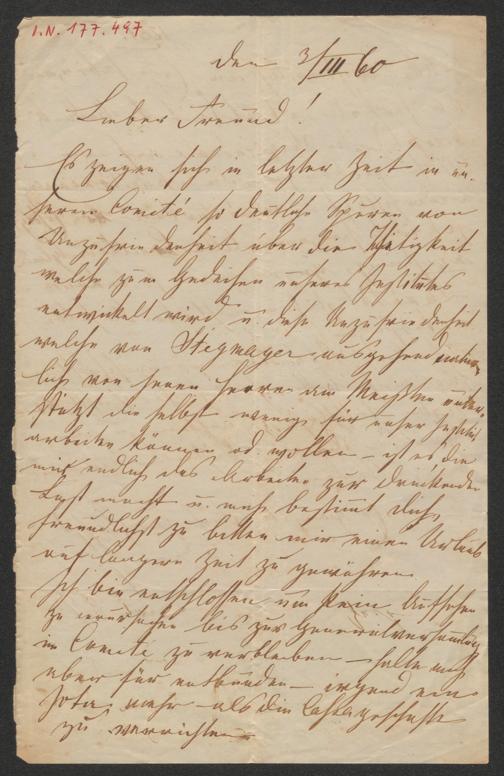 I.N. 177.497
den 3/III 60
Lieber Freund!
Es zeigen sich in letzter Zeit in un-
serem Comité so deutliche Spuren von
Unzufriedenheit über die Thätigkeit
welche zum Gedeihen unseres Institutes
entwickelt wird u. diese Unzufriedenheit
welche von Stegmayer ausgehend natür-
lich von jenen Herren am Meisten unter-
stützt die selbst wenig für unser Institut
arbeiten können od. wollen – ist es die
mir endlich das Arbeiten zur drückenden
Last macht u. mich bestimmt Dich
freundlichst zu bitten mir einen Urlaub
auf längere Zeit zu gewähren.
Ich bin entschlossen um kein Aufsehen
zu verursachen bis zur Generalversammlung
im Comité zu verbleiben – halte mich
aber für entbunden – irgend ein
Jota mehr als die Cassageschäfte
zu verrichten